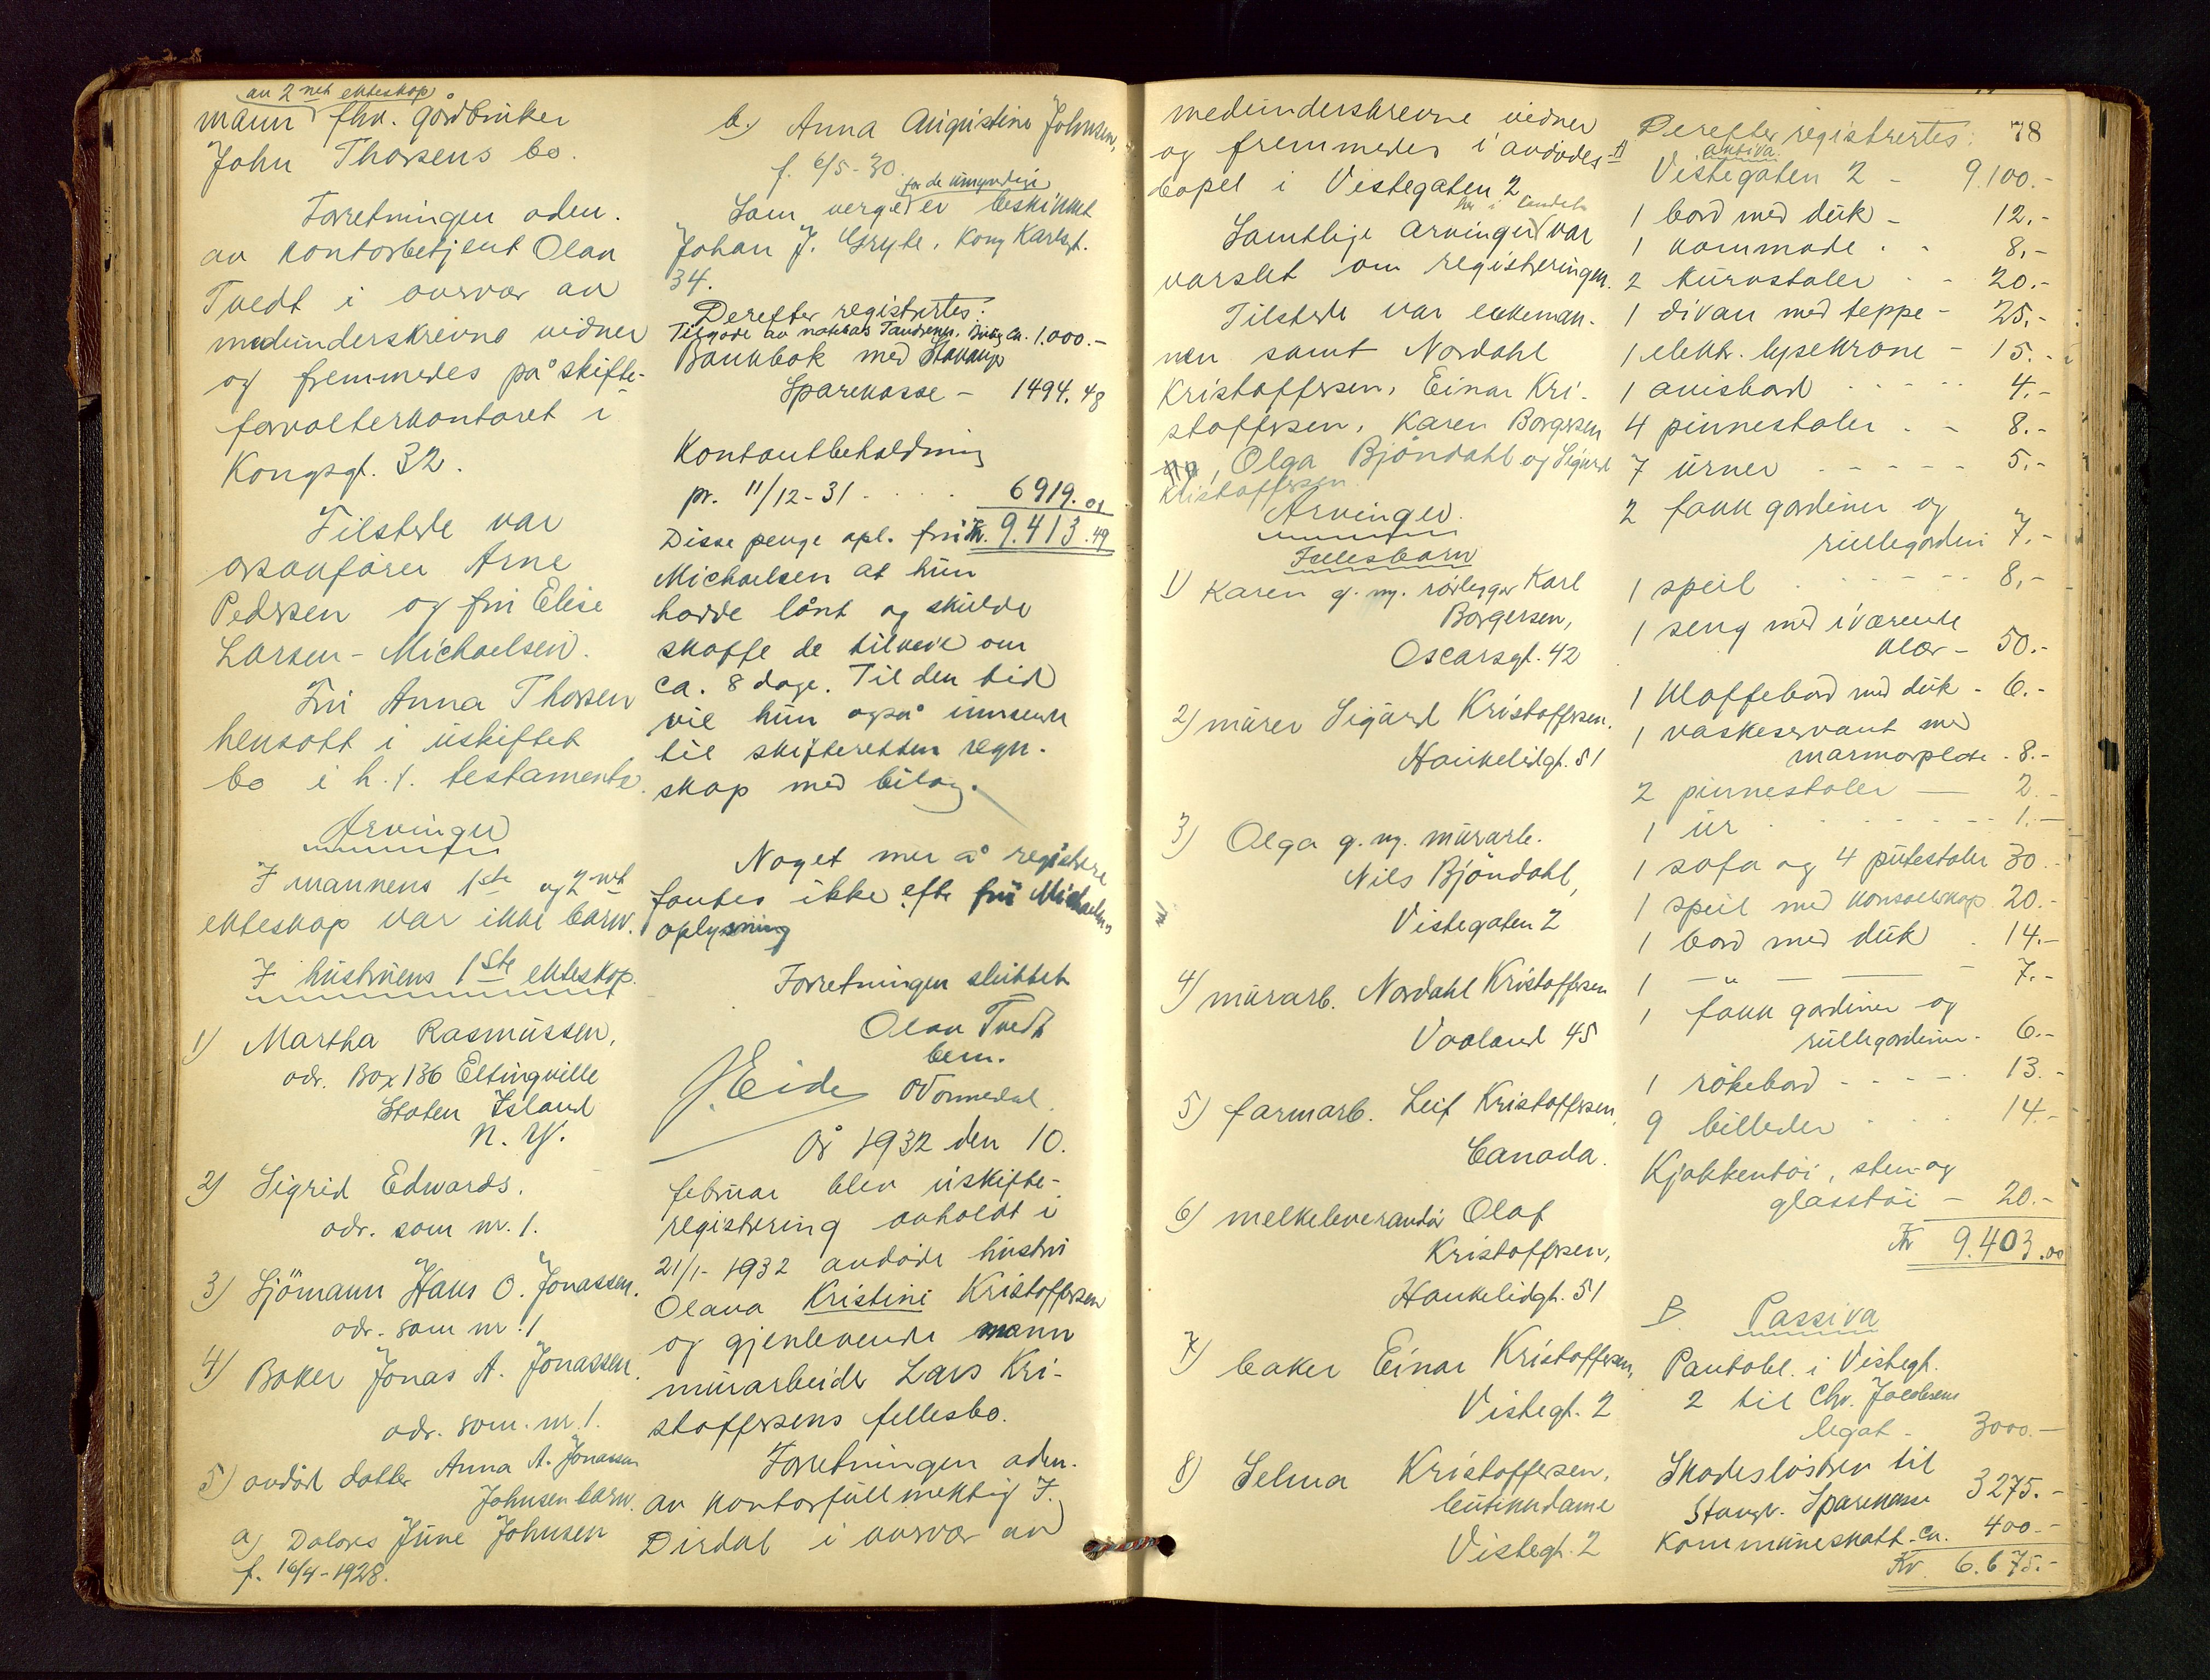 av 2net ekteskap
mann fhv. gårdbruker
John Thorsens bo.
Forretningen adm.
av kontorbetjent Olav
Tvedt i overvær av
medunderskrevne vidner
og fremmedes på skifte-
forvalterkontoret i
Kongsgt. 32.
Tilstede var
orsakfører Arne
Pedersen og fru Elise
Larsen-Michaelsen.
Fru Anna Thorsen
hensatt i uskiftet
bo i h.t. testamente.
Arvinger
I mannens 1ste og 2net
ekteskap var ikke barn.
I hustruens 1ste ekteskap.
1) Martha Rasmussen,
adr. Box 136 Eltingville
Staten Island
N.Y.
2) Sigrid Edwards.
adr. som nr. 1.
3) Sjömann Hans O. Jonassen.
adr. som nr. 1
4) Baker Jonas A. Jonassen.
adr. som nr. 1.
5) avdöd datter Anna A. Jonassen
Johnsen barn.
a) Dolores June Johnsen
f. 16/4-1928.
b.) Anna Augustine Johnsen,
f. 6/5-30.
for de umyndige
Som verge er beskikket
Johan J. Gryte, Kong Karlsgt.
34.
Derefter registrertes:
Tilgode av Ca. 1.000.-
Bankbok med Stavanger
Sparekasse - 1494.48
Kontantbeholdning
pr. 11/12-31 . . . . 6919.01
Disse penge opl. fru Kr. 9.413.49
Michaelsen at hun
hadde lånt og skulde
skaffe de tilveie om
ca. 8 dage. Til den tid
vil hun også innsende
til skifteretten regn-
skap med bilag.
Noget mer å registrere
fantes ikke efter fru Michaelsens
oplysning
Forretningen sluttet
Olav Tvedt
bem.
J. Eide
År 1932 den 10.
februar blev uskifte-
registrering avholdt i
21/1-1932 avdöde hustru
Olava Kristine Kristoffersen
og gjenlevende mann
murarbeider Lars Kri-
stoffersens fellesbo.
Forretningen adm.
av kontorfullmektig I.
Dirdal i overvær av
78
medunderskrevne vidner
og fremmedes i avdødes
bopel i Vistegaten 2
her i landet
Samtlige arvinger var
varslet om registreringen.
Tilstede var enkeman-
nen samt Nordahl
Kristoffersen, Einar Kri-
stoffersen, Karen Borgersen
, Olga Bjöndahl og Sigurd
Kristoffersen
Arvinger.
Fellesbarn
1) Karen g. m. rörlegger Karl
Borgersen,
Oscarsgt. 42
2) murer Sigurd Kristoffersen.
Haukeligt. 51
3) Olga g. m. murarb.
Nils Bjöndahl,
Vistegaten 2
4) murarb. Nordahl Kristoffersen
Vaaland 45
5) farmarb. Leif Kristoffersen,
Canada.
6) melkeleverandör Olaf
Kristoffersen,
Haukelidgt. 51
7) baker Einar Kristoffersen,
Vistegt. 2
8) Selma Kristoffersen,
butikkdame
Vistegt. 2
Derefter registrertes:
A) aktiva.
Vistegaten 2 - 9.100.-
1 bord med duk - 12.-
1 kommode . - 8.-
2 kurvstoler - - 20.-
1 divan med teppe - 25.-
1 elektr. lysekrone - 15.-
1 avisbord - - - - 4.-
4 pinnestoler . - 8.-
7 urner - - - - - 5.-
2 fakk gardiner og
rullegardin 7.-
1 speil . - - - - 8.-
1 seng med iværende
klær - 50.-
1 klaffebord med duk - 6.-
1 vaskeservant med
marmorplate - 8.-
2 pinnestoler — 2.-
1 ur . - - - - - 1.-
1 sofa og 4 putestoler 30.-
1 speil med konsollskap 20.-
1 bord med duk . 14.-
1 — " — — - 7.-
1 fakk gardiner og
rullegardiner. 6.-
1 rökebord - - - - . 13.-
9 billeder . . . 14.-
Kjökkentöi, sten- og
glasstöi - 20.-
Kr 9.403.00
B Passiva
Pantobl. i Vistegt.
2 til Chr. Jacobsens
legat - 3000.-
Skadeslösbrev til
Stavgr. Sparekasse 3275.-
Kommuneskatt ca. 400.-
Kr. 6.675.-